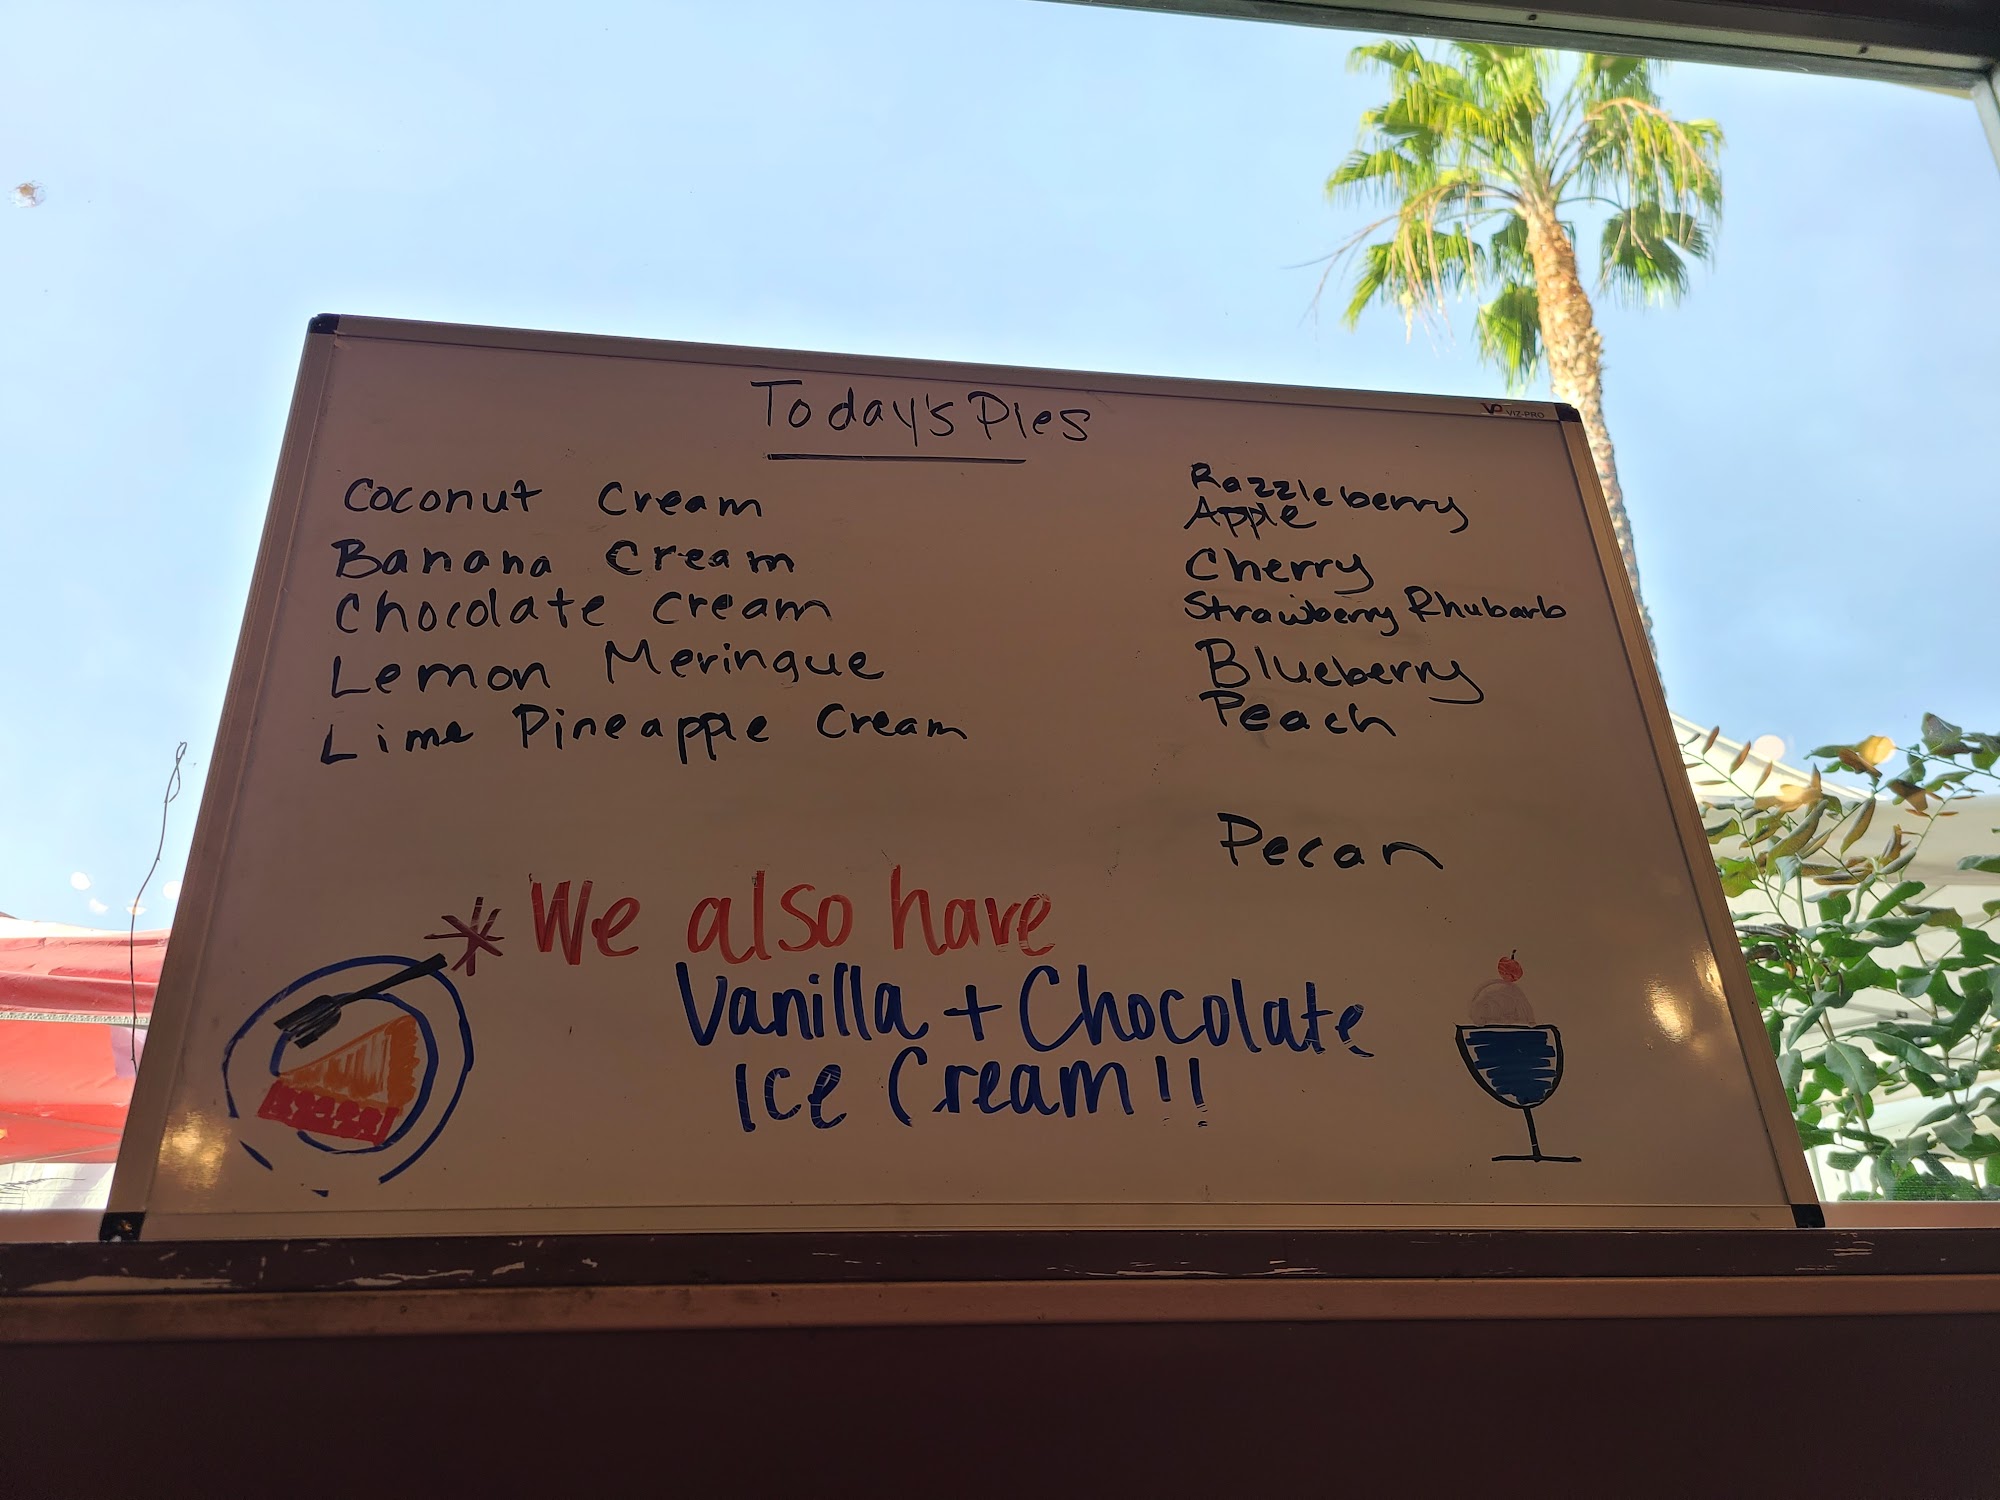 Today's Pies
VIZ-PRO
Coconut Cream
Banana Cream
Chocolate Cream
Lemon Meringue
Lime Pineapple Cream
Razzleberry
Apple
Cherry
Strawberry Rhubarb
Blueberry
Peach
Pecan
* We also have
Vanilla + Chocolate
Ice Cream!!